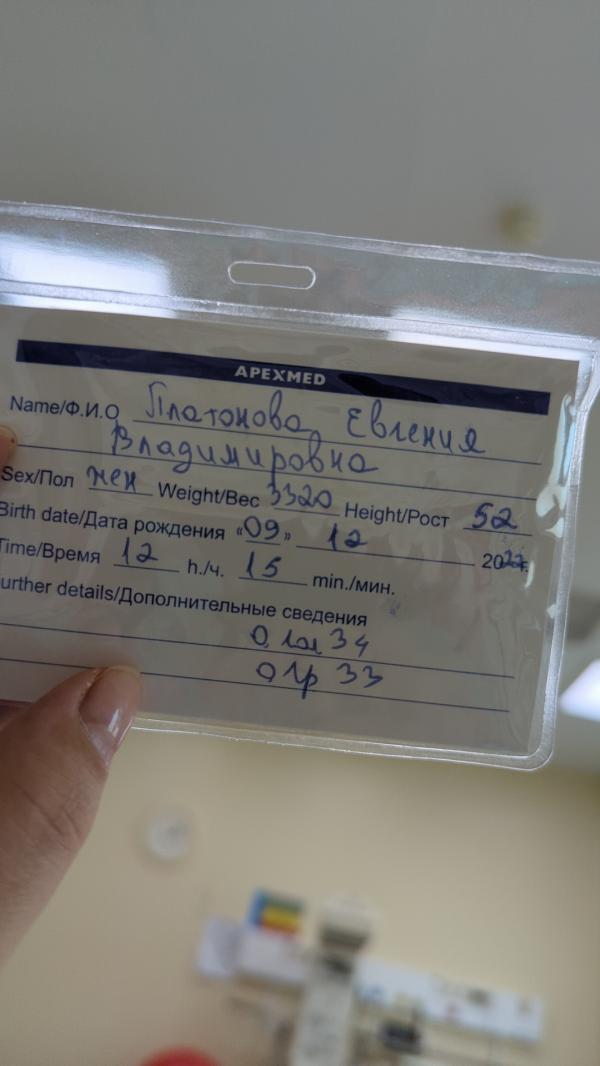 APEXMED
Name/Ф.И.О Платонова Евгения
Владимировна
Sex/Пол жен Weight/Вес 3320 Height/Рост 52
Birth date/Дата рождения «09» 12 2022г.
Time/Время 12 h./ч. 15 min./мин.
Further details/Дополнительные сведения
О гол 34
О гр 33